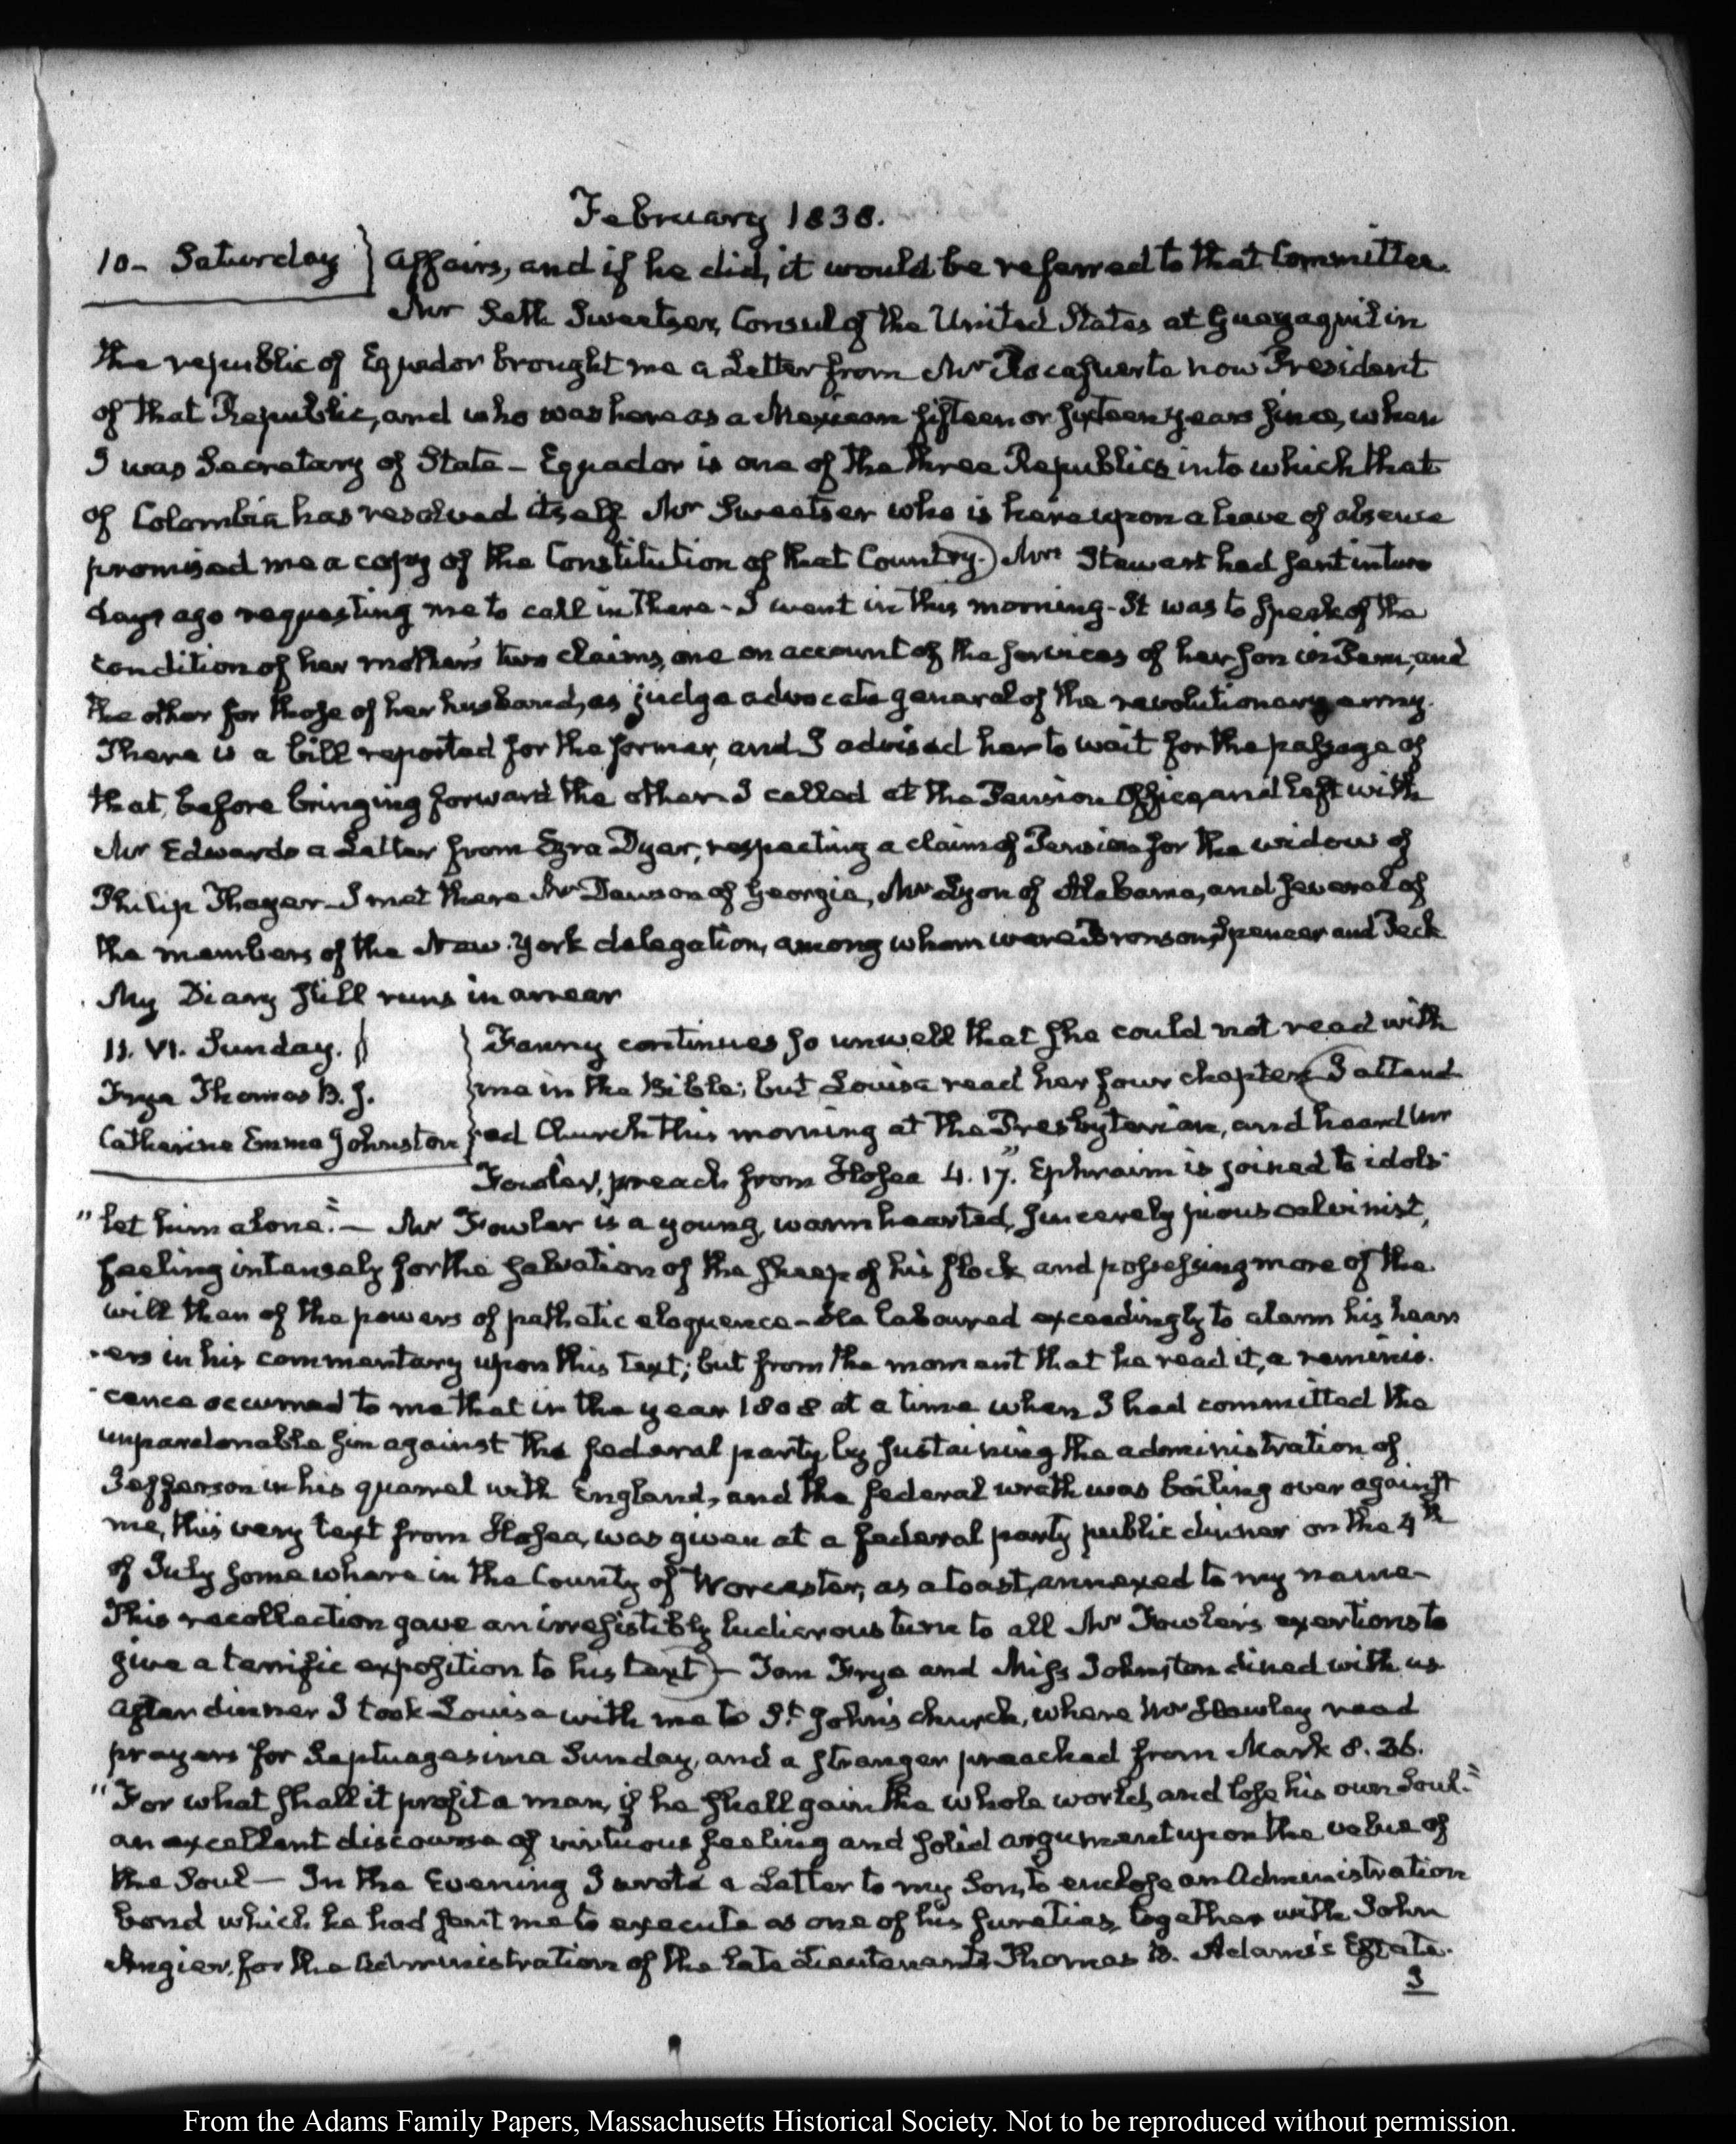 February 1838.
10 - Saturday } Affairs, and if he did, it would be referred to that Committee.
Mr Seth Sweetser, Consul of the United States at Guayaquil in
the republic of Equador brought me a Letter from Mr Rocafuerte now President
of that Republic, and who was here as a Mexican fifteen or sixteen years since, when
I was Secretary of State - Equador is one of the three Republics into which that
of Colombia has resolved itself Mr Sweetser who is here upon a leave of absence
promised me a copy of the Constitution of that Country.) Mrs Stewart had sent in two
days ago requesting me to call in there - I went in this morning - It was to speak of the
condition of her mother's two claims, one on account of the services of her son in Peru, and
the other for those of her husband, as judge advocate general of the revolutionary army.
There is a bill reported for the former, and I advised her to wait for the passage of
that, before bringing forward the other - I called at the Pension Office, and left with
Mr Edwards a Letter from Ezra Dyer, respecting a claim of Pension for the widow of
Philip Thayer - I met there Mr Dawson of Georgia, Mr Lyon of Alabama, and several of
the members of the New-York delegation, among whom were Bronson, Spencer and Peck
My Diary still runs in arrear
11. VI. Sunday. } Fanny continues so unwell that she could not read with
Frye Thomas B. J. } me in the Bible; but Louisa read her four chapters I attend
Catherine Emma Johnston } ed Church this morning at the Presbyterian, and heard Mr
Fowler, preach from Hosea 4. 17. "Ephraim is joined to idols
"let him alone." - Mr Fowler is a young, warm hearted, sincerely pious calvinist,
feeling intensely for the salvation of the sheep of his flock and possessing more of the
will than of the powers of pathetic eloquence - He laboured exceedingly to alarm his hear
-ers in his commentary upon this text; but from the moment that he read it, a reminis-
-cence occurred to me that in the year 1808 at a time when I had committed the
unpardonable sin against the federal party, by sustaining the administration of
Jefferson in his quarrel with England, and the federal wrath was boiling over against
me, this very text from Hosea, was given at a federal party public dinner on the 4th
of July somewhere in the County of Worcester, as a toast, annexed to my name -
This recollection gave an irresistibly ludicrous turn to all Mr Fowler's exertions to
give a terrific exposition to his text) - Tom Frye and Miss Johnston dined with us
After dinner I took Louisa with me to St. John's church, where Mr Hawley read
prayers for Septuagesima Sunday, and a stranger preached from Mark 8. 36.
"For what shall it profit a man, if he shall gain the whole world, and lose his own Soul."
an excellent discourse of virtuous feeling and solid argument upon the value of
the Soul - In the Evening I wrote a Letter to my Son, to enclose an Administration
bond which he had sent me to execute as one of his sureties, together with John
Angier, for the administration of the late Lieutenant Thomas B. Adams's Estate.
I
From the Adams Family Papers, Massachusetts Historical Society. Not to be reproduced without permission.